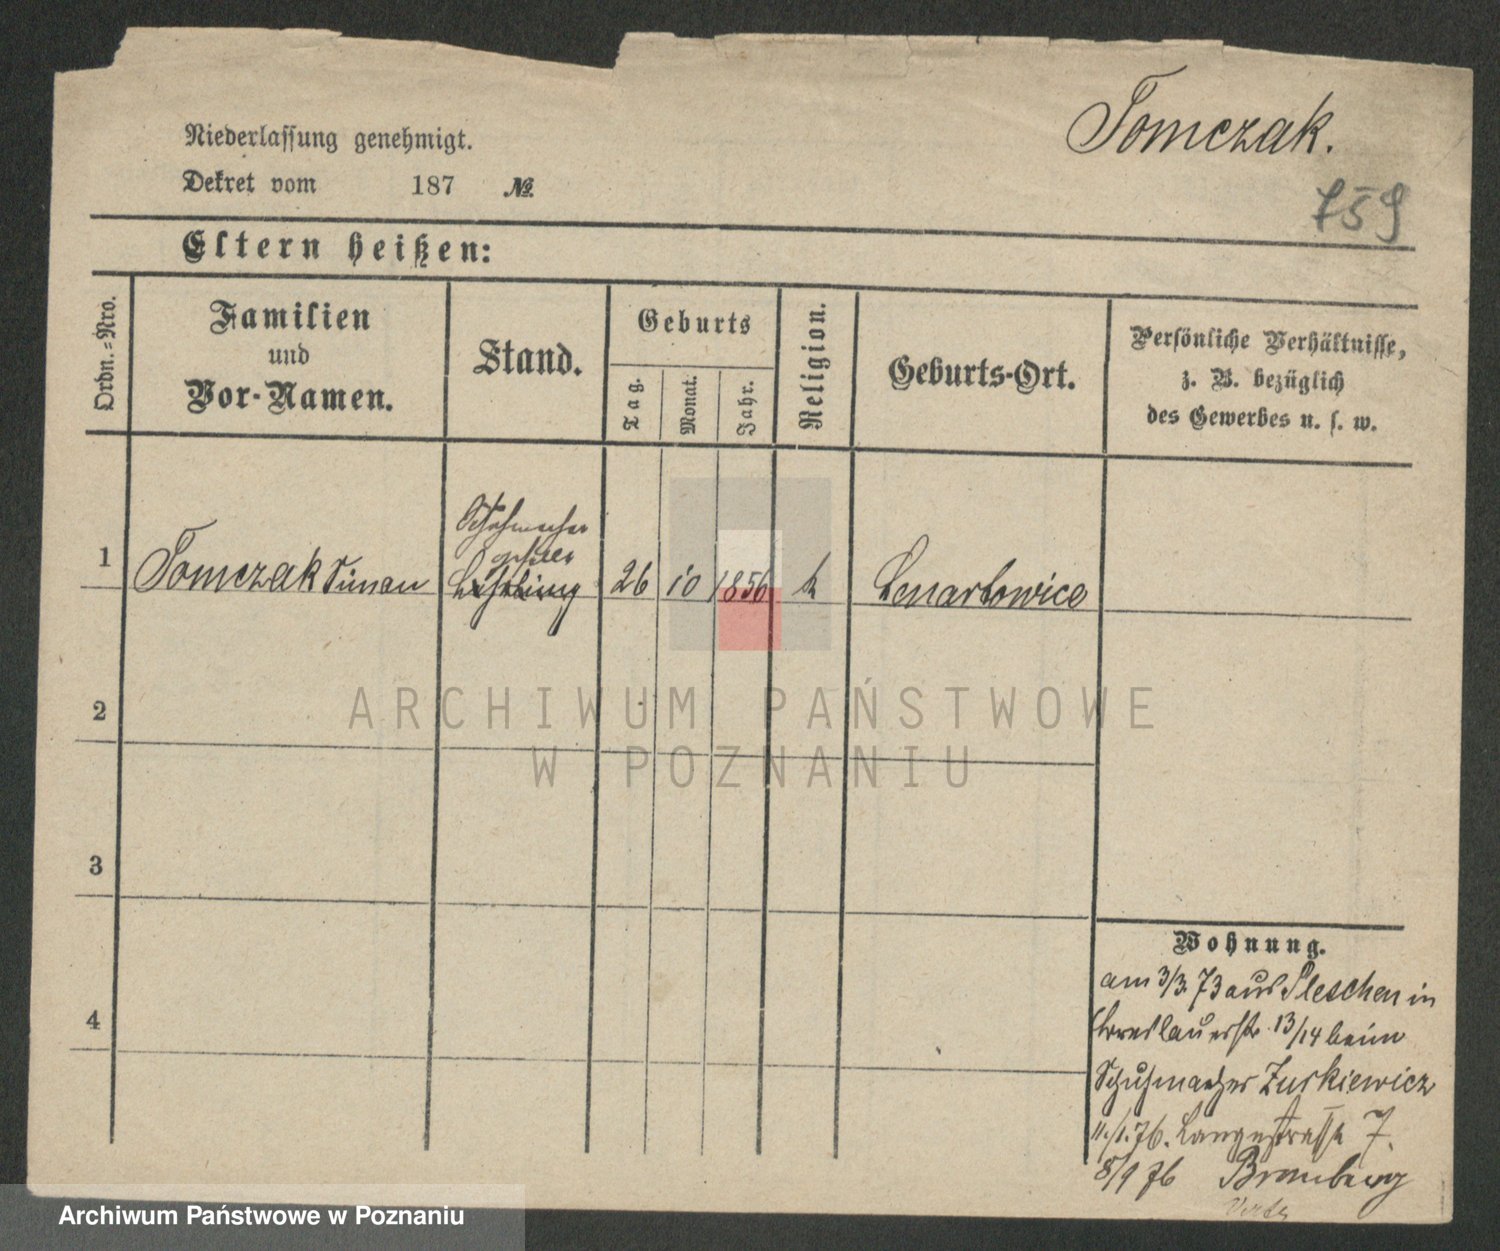 Tomczak.
759
Niederlassung genehmigt.
Dekret vom 187 №.
Eltern heißen:
Ordn.-Nro.
Familien
und
Vor-Namen.
Stand.
Geburts
Tag.
Monat.
Jahr.
Religion.
Geburts-Ort.
Persönliche Verhältnisse,
z. B. bezüglich
des Gewerbes u. s. w.
Schuhmacher
1 Tomczak Simon Lehrling 26 10 1856 k Lenartowice
2
3
4
Wohnung.
am 3/3. 73 aus Pleschen in
Breslauerstr. 13/14 beim
Schuhmacher Zurkiewicz
11./1. 76. Langestraße 7.
8/9 76 Bromberg
ARCHIWUM PAŃSTWOWE
W POZNANIU
Archiwum Państwowe w Poznaniu